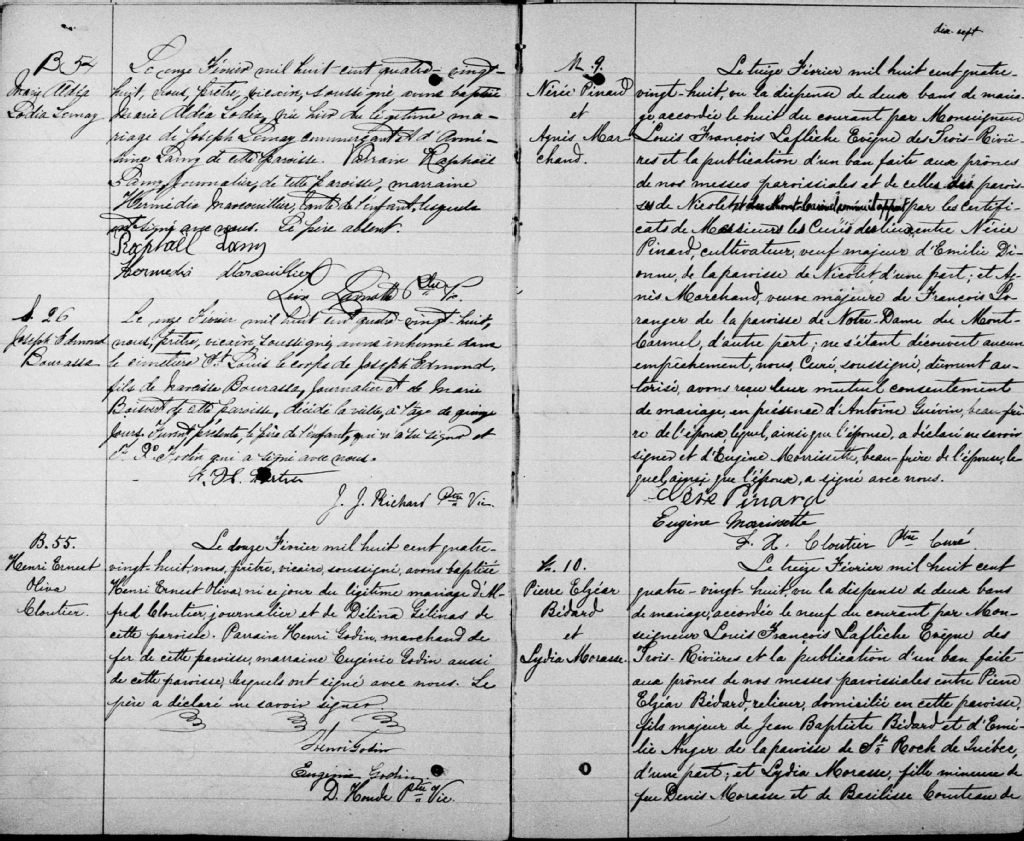 B. 54
Marie Aldéa
Lodia Lemay
Le onze Février mil huit cent quatre-vingt-
huit, nous, prêtre, vicaire, soussigné avons baptisé
Marie Aldéa Lodia, née hier du légitime ma-
riage de Joseph Lamy et d'
de cette paroisse. Parrain Raphaël
Lamy, journalier, de cette paroisse, marraine
Hermédis Marcouillier, tante de l'enfant, lesquels
ont signé avec nous. Le père absent.
Raphaell Lamy
Hermedis
Ptre V.
S. 26
Joseph Edmond
Bourassa
Le onze Février mil huit cent quatre-vingt huit,
nous, prêtre, vicaire, soussigné, avons inhumé dans
le cimetière St Louis le corps de Joseph Edmond,
fils de Narcisse Bourassa, journalier et de Marie
Boisvert de cette paroisse, décédé la veille, à l'âge de quinze
jours. Furent présents, le père de l'enfant, qui n'a su signer et
qui a signé avec nous.
J. J. Richard Ptre Vic.
B. 55.
Henri Ernest
Oliva
Cloutier
Le douze Février mil huit cent quatre-
vingt-huit, nous, prêtre, vicaire, soussigné, avons baptisé
Henri Ernest Oliva, né ce jour du légitime mariage d'Al-
fred Cloutier, journalier et de Délina Gélinas de
cette paroisse. Parrain Henri Godin, marchand de
fer de cette paroisse, marraine Eugénie Godin aussi
de cette paroisse, lesquels ont signé avec nous. Le
père a déclaré ne savoir signer.
Henri Godin
Eugénie Godin.
D. Houde Ptre Vic.
dix sept
M. 9.
Nérée Pinard
et
Agnès Mar-
chand.
Le treize Février mil huit cent quatre-
vingt-huit, vu la dispense de deux bans de maria-
ge, accordée le huit du courant par Monseigneur
Louis François Laflèche Evêque des Trois-Riviè-
res et la publication d'un ban faite aux prônes
de nos messes paroissiales et de celles des parois-
ses de Nicolet par les certifi-
cats de Messieurs les Curés des lieux entre Nérée
Pinard, cultivateur, veuf majeur d'Emilie Di-
onne, de la paroisse de Nicolet, d'une part; et Ag-
nès Marchand, veuve majeure de François Lo-
ranger de la paroisse de Notre-Dame du Mont-
Carmel, d'autre part; ne s'étant découvert aucun
empêchement, nous, Curé, soussigné, dûment au-
torisé, avons reçu leur mutuel consentement
de mariage, en présence d'Antoine Guévin, beau-frè-
re de l'époux, lequel, ainsi que l'épouse, a déclaré ne savoir
signer et d'Eugène Morrissette, beau-frère de l'épouse, le-
quel, ainsi que l'époux, a signé avec nous.
Pinard
Eugène Morissette
F. X. Cloutier Ptre Curé
M. 10.
Pierre Elzéar
Bédard
et
Lydia Morasse.
Le treize Février mil huit cent
quatre-vingt-huit, vu la dispense de deux bans
de mariage, accordée le neuf du courant par Mon-
seigneur Louis François Laflèche Evêque des
Trois-Rivières et la publication d'un ban faite
aux prônes de nos messes paroissiales entre Pierre
Elzéar Bédard, relieur, domicilié en cette paroisse,
fils majeur de Jean Baptiste Bédard et d'Emé-
lie Auger de la paroisse de St Roch de Québec,
d'une part; et Lydia Morasse, fille mineure de
feu Denis Morasse et de Basilisse Comteau de